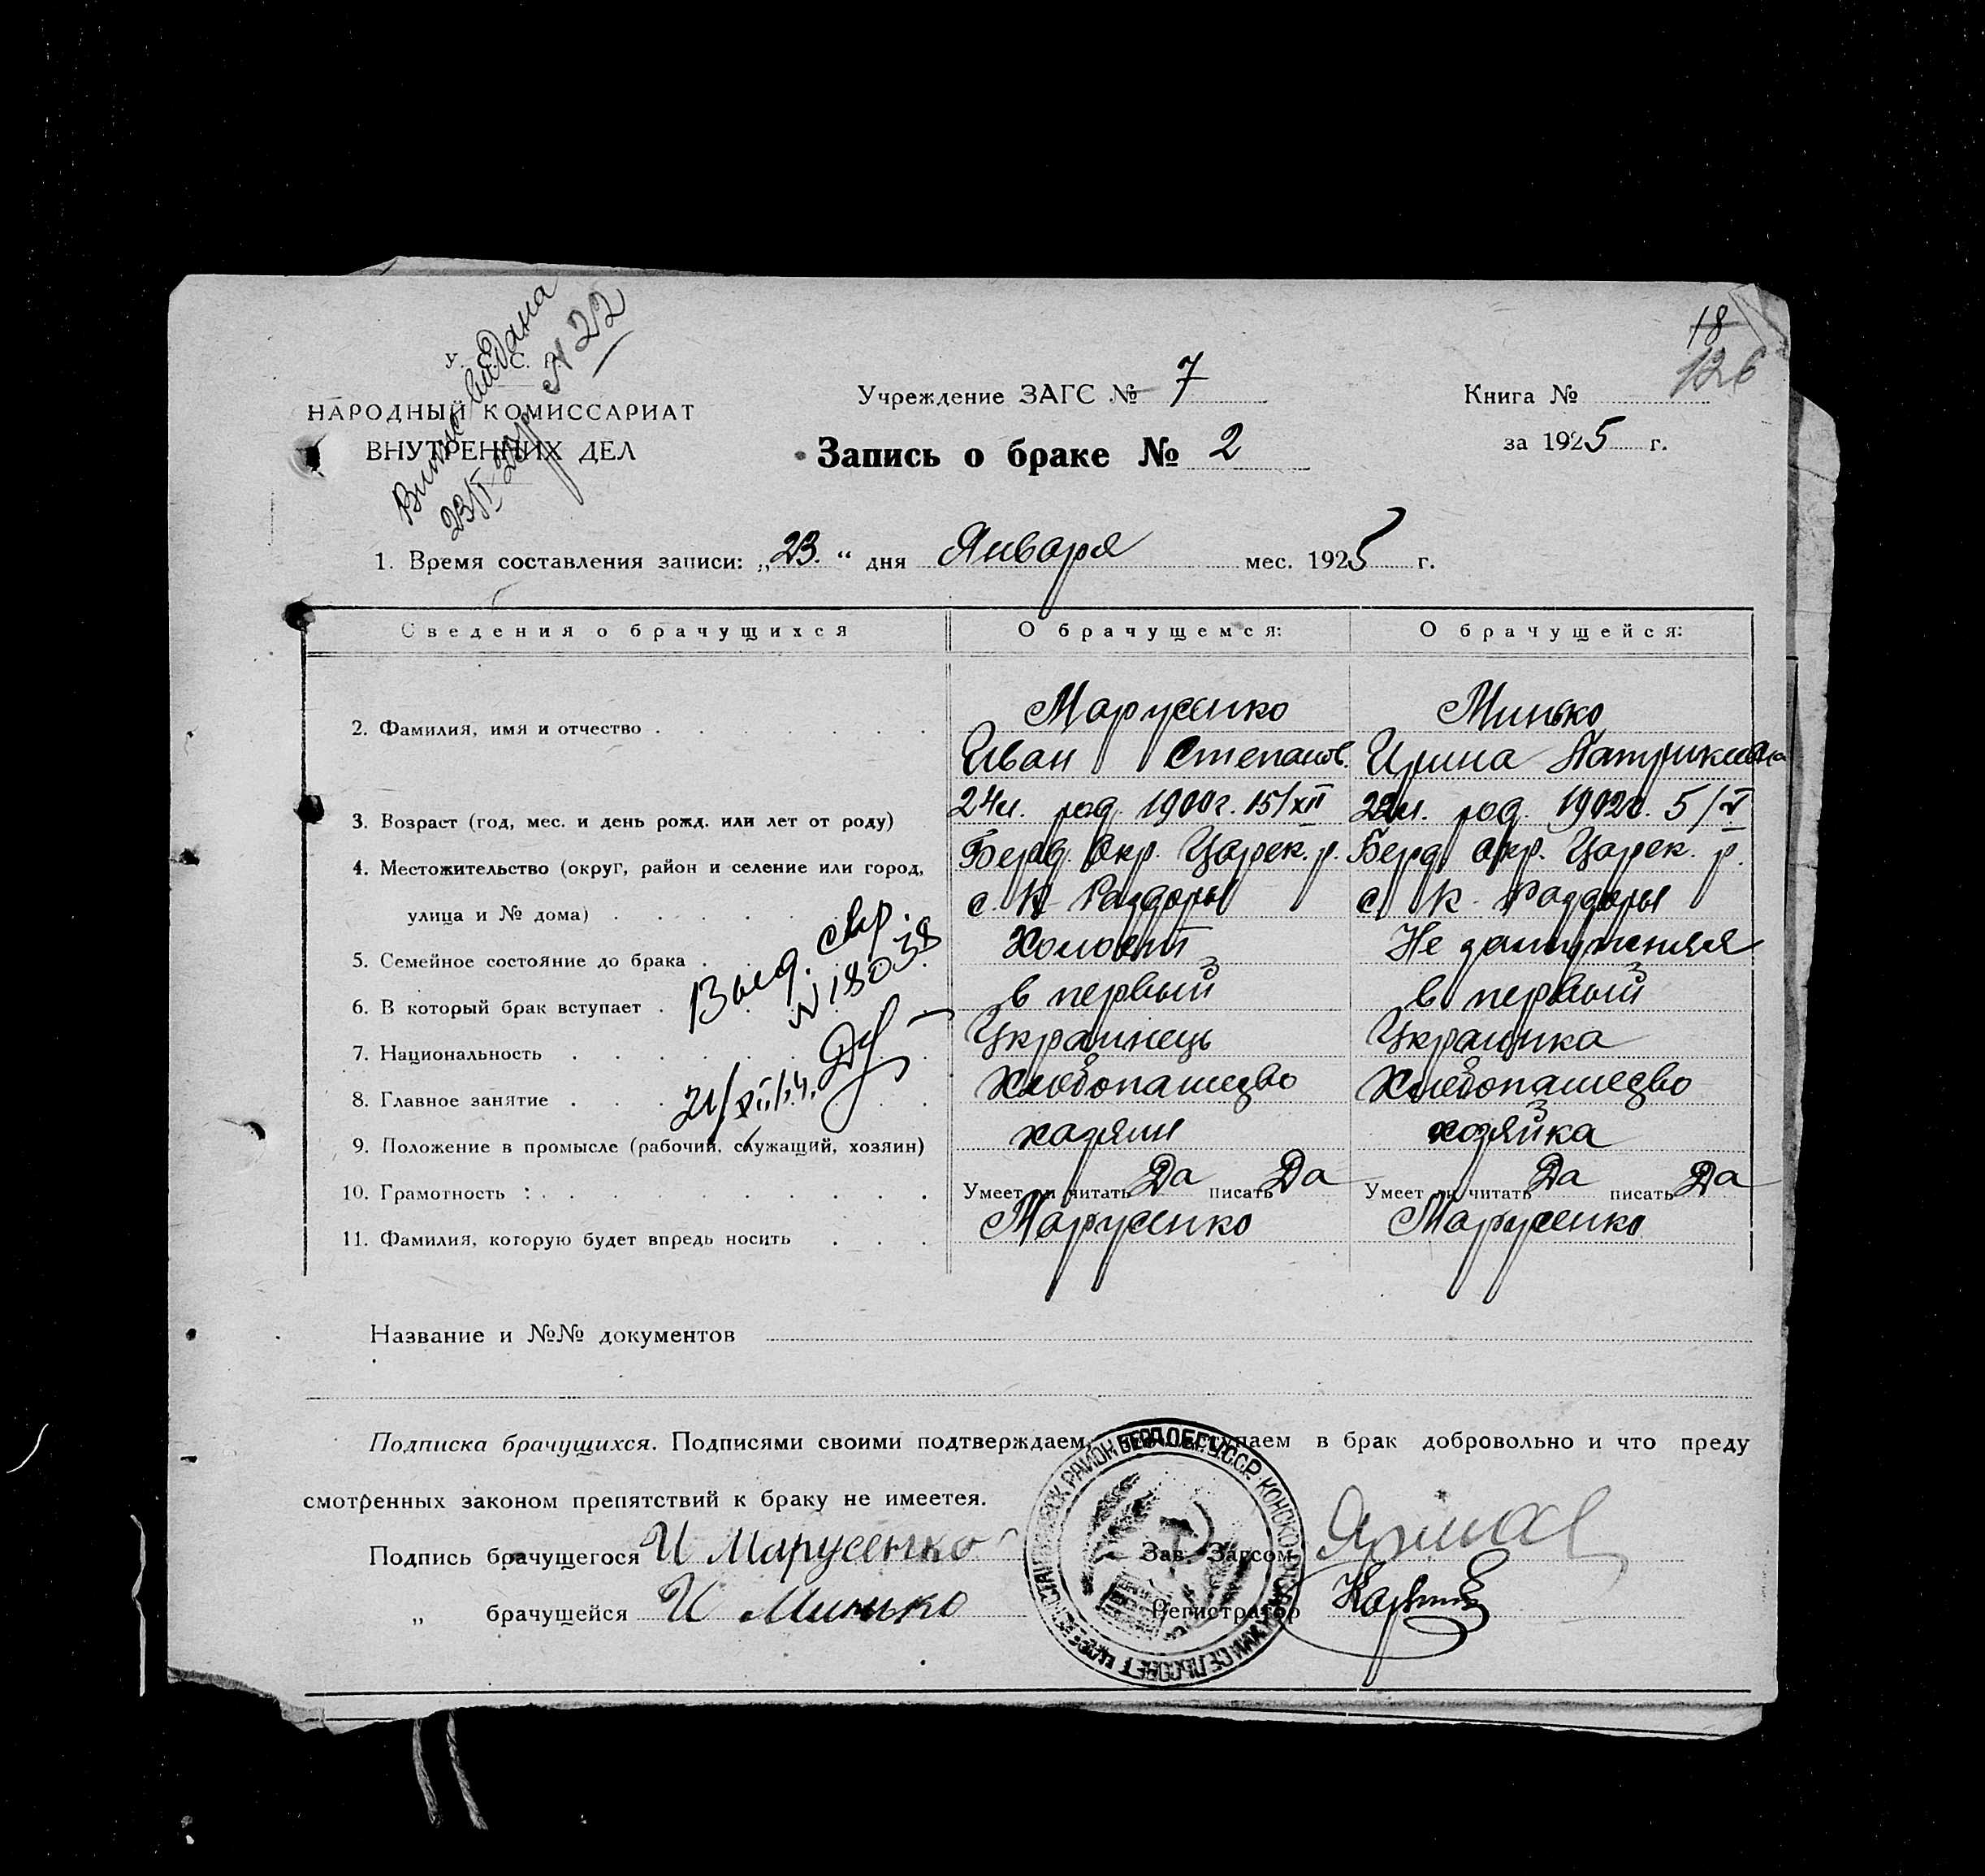 18
126
Выпис выдана
23/I 25 г. N 22
У. С. С. Р.
НАРОДНЫЙ КОМИССАРИАТ
ВНУТРЕННИХ ДЕЛ
Учреждение ЗАГС № 7
Книга №
Запись о браке № 2
за 1925 г.
1. Время составления записи: „23.“ дня Января мес. 1925 г.
Сведения о брачущихся О брачущемся: О брачущейся:
2. Фамилия, имя и отчество Марусенко Минько
Иван Степанов. Ирина Патрикиевна
3. Возраст (год, мес. и день рожд. или лет от роду) 24л. род. 1900г. 15/XII 22л. род. 1902г. 5/V
4. Местожительство (округ, район и селение или город, Берд. Окр. Царек. р. Берд. Окр. Царек. р.
улица и № дома) с. К Раздоры с. К. Раздоры
5. Семейное состояние до брака Холост Не замужняя
6. В который брак вступает в первый в первый
7. Национальность Украинець Украинка
8. Главное занятие Хлебопашедво Хлебопашедво
9. Положение в промысле (рабочий, служащий, хозяин) хазяин хозяйка
10. Грамотность: Умеет ли читать Да писать Да Умеет ли читать Да писать Да
11. Фамилия, которую будет впредь носить Марусенко Марусенко
Выд. свр.
N 18038
21/XII
Название и №№ документов
Подписка брачущихся. Подписями своими подтверждаем, вступаем в брак добровольно и что преду
смотренных законом препятствий к браку не имеетея.
Подпись брачущегося И Марусенко Зав. Загсом
„ брачущейся И Минько Регистратор
РАЙОН БЕРД ОБГ. У.С.С.Р. КОНСКО СЕЛЬСОВЕТ